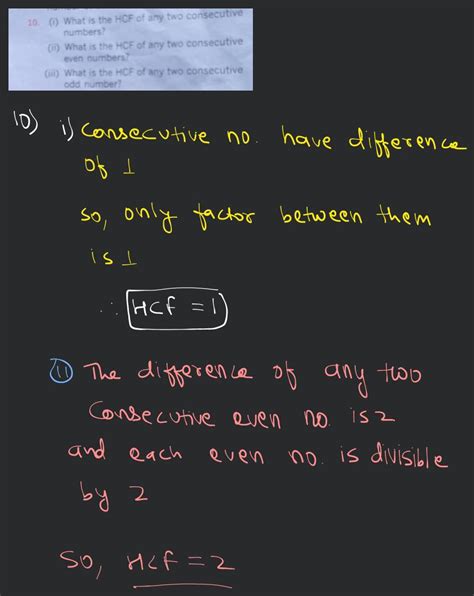 10. (i) What is the HCF of any two consecutive
numbers?
(ii) What is the HCF of any two consecutive
even numbers?
(iii) What is the HCF of any two consecutive
odd number?
10) i) Consecutive no. have difference
of 1
so, only factor between them
is 1
∴ HCF = 1
(ii) The difference of any two
Consecutive even no. is 2
and each even no. is divisible
by 2
So, HCF = 2